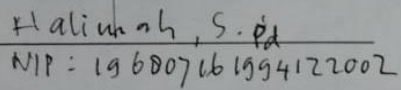 Halimah, S.Pd
NIP: 196807161994122002